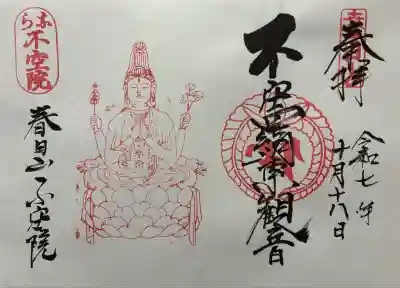 奉拝
令和七年
十月十八日
不空羂索觀音
なら
不空院
春日山不空院